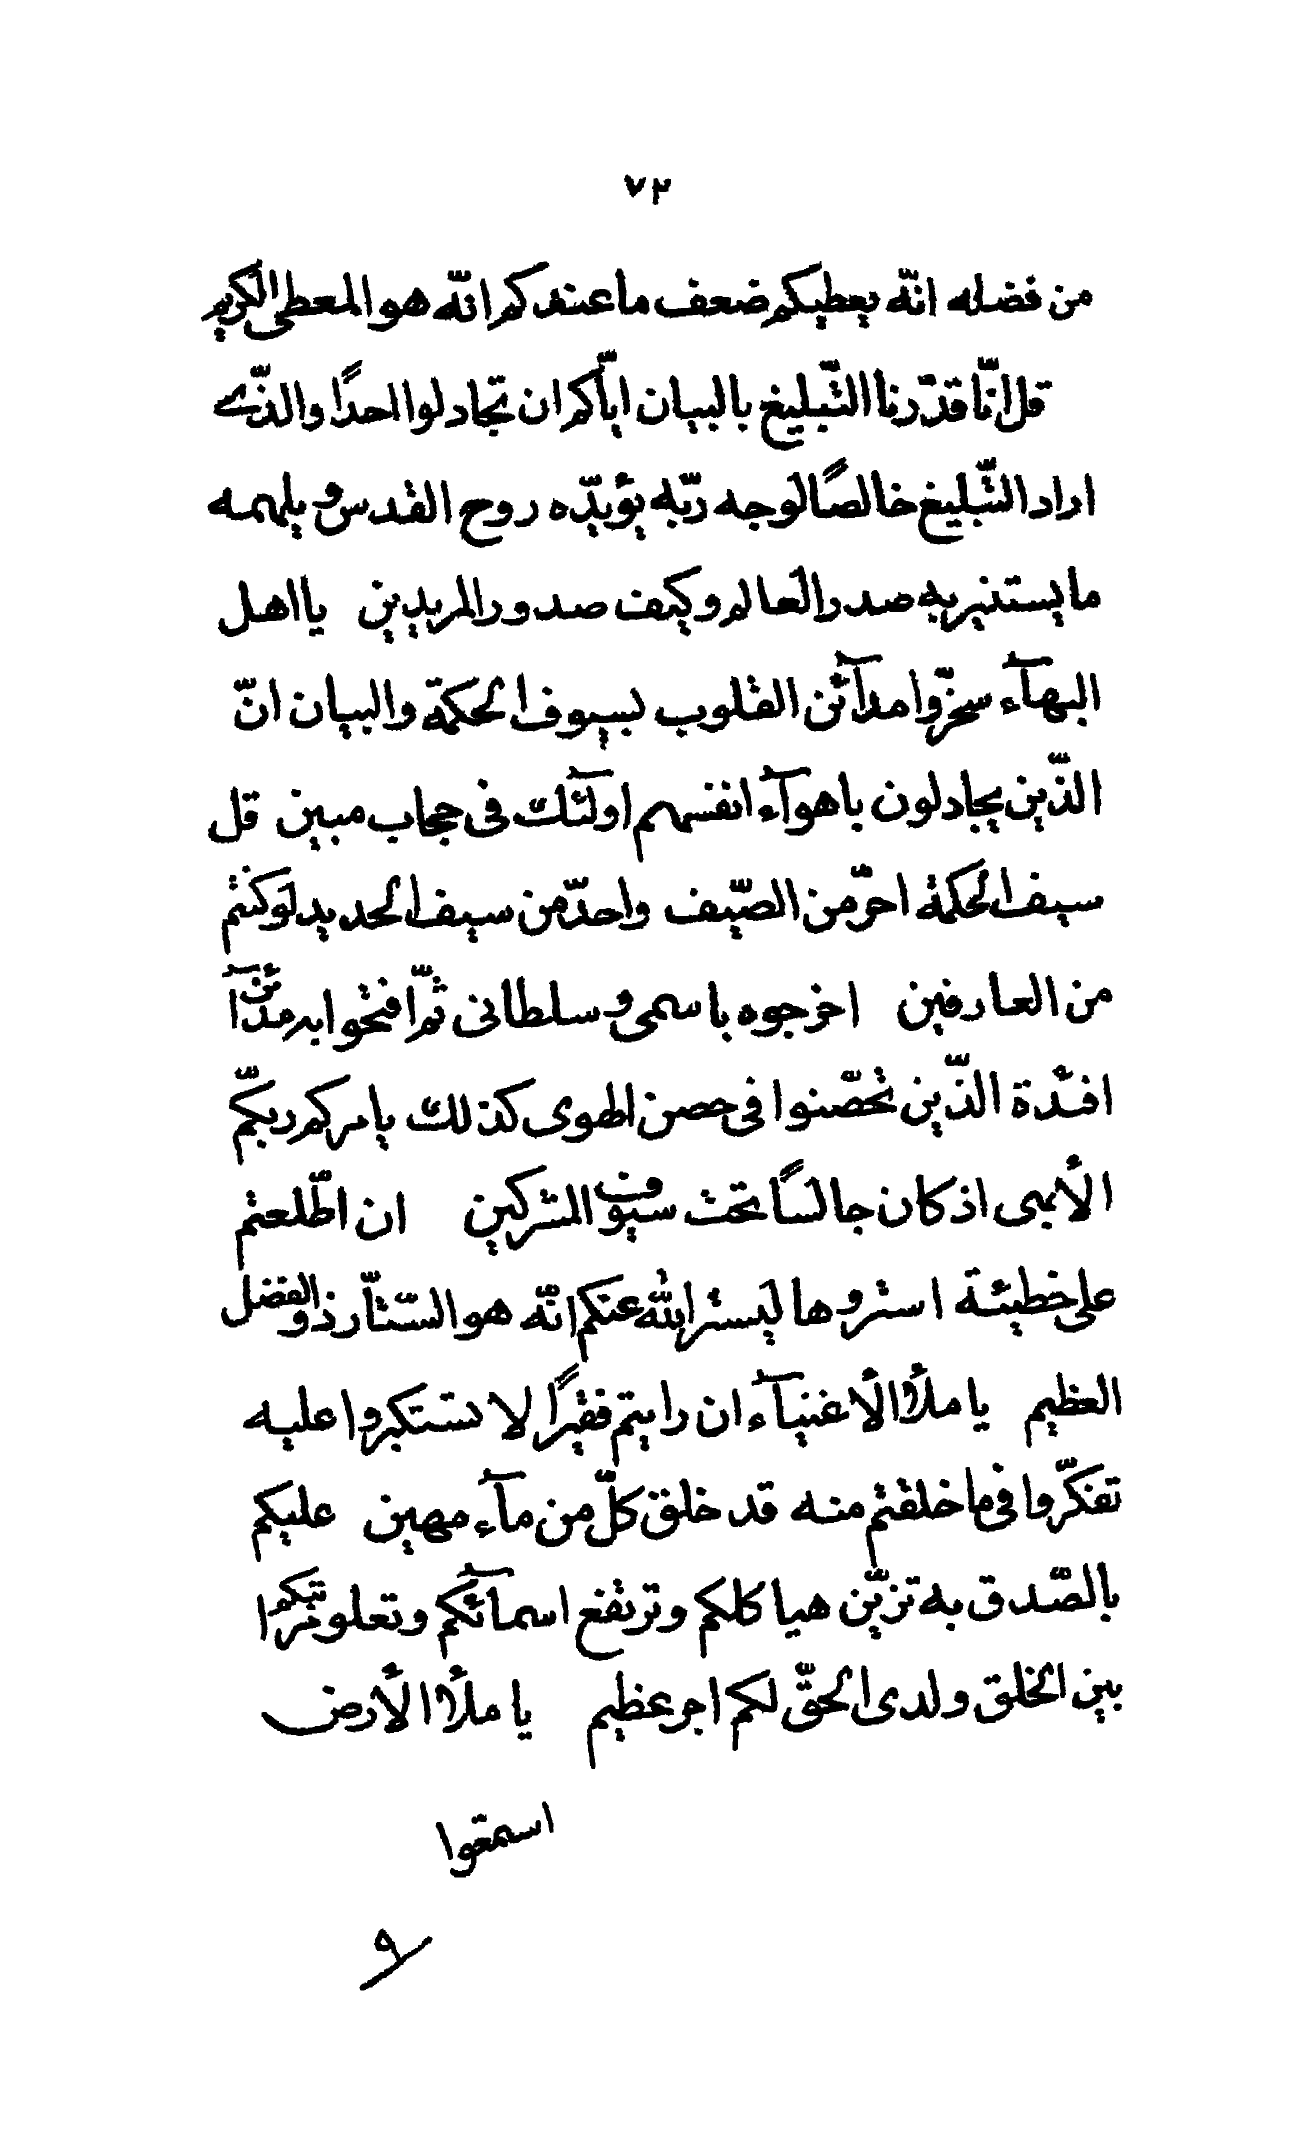 ٧٢
من فضله انّه يعطيكم ضعف ما عندكم انّه هو المعطى الكريم
قل انّا قدّرنا التّبليغ بالبيان ايّاكم ان تجادلوا احدًا والّذى
اراد التّبليغ خالصًا لوجه ربّه يؤيّده روح القدس و يلهمه
ما يستنير به صدر العالم و كيف صدور المريدين يا اهل
البهآء سخّروا مدآئن القلوب بسيوف الحكمة والبيان انّ
الّذين يجادلون باهوآء انفسهم اولٓئك فى حجاب مبين قل
سيف الحكمة احرّ من الصّيف واحدّ من سيف الحديد لو كنتم
من العارفين اخرجوه باسمى و سلطانى ثمّ افتحوا به مدآئن
افئدة الّذين تحصّنوا فى حصن الهوى كذلك يامركم ربّكم
الأبهى اذ كان جالسًا تحت سيوف المشركين ان اطّلعتم
على خطيئة استروها ليستر الله عنكم انّه هو السّتّار ذو الفضل
العظيم يا ملأ الأغنيآء ان رايتم فقيرًا لا تستكبروا عليه
تفكّروا فى ما خلقتم منه قد خلق كلّ من مآء مهين عليكم
بالصّدق به تزيّن هياكلكم و ترتفع اسمآئكم و تعلو مراتبكم
بين الخلق و لدى الحقّ لكم اجر عظيم يا ملأ الأرض
اسمعوا
٩